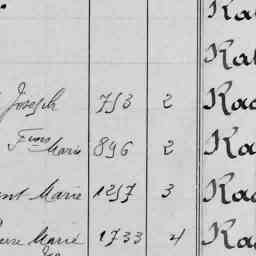 Ka
Ka
Joseph 753 2 Ka
Fçois Marie 896 2 Ka
Marie 1257 3 Ka
Marie 1733 4 Ka